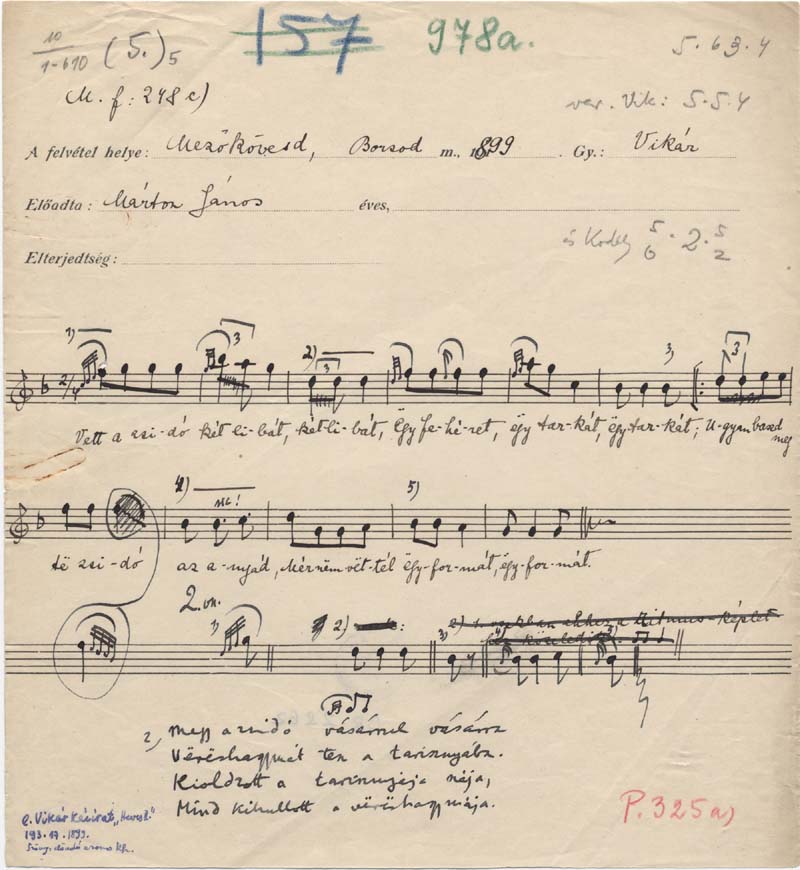 10
1-610 (5.)5
157
978a.
5.63.4
M. f: 248 c)
var. Vik: 5.5.4
A felvétel helye: Mezőkövesd, Borsod m., 1899 Gy.: Vikár
Előadta: Márton János éves,
és Kodály 5/6 . 2 . 5/2
Elterjedtség:
1) 3 2) 3 3) 3
2/4
Vett a zsi-dó két li-bát, két-li-bát, Ëgy fe-hé-ret, ëgy tar-kát, ëgy tar-kát; U-gyan baszd meg
4) sic! 5)
të zsi-dó az a-nyád, Mér nem vët-tél ëgy-for-mát, ëgy-for-mát.
2. vn.
1) 2) 3)
2, Mëgy a zsidó vásárrul vásárra
Vöröshagymát tëz a tarisznyába.
Kioldzott a tarisznyája mája,
Mind kihullott a vöröshagymája.
P. 325a)
e. Vikár kézirat "Heves II."
193.17.1899.